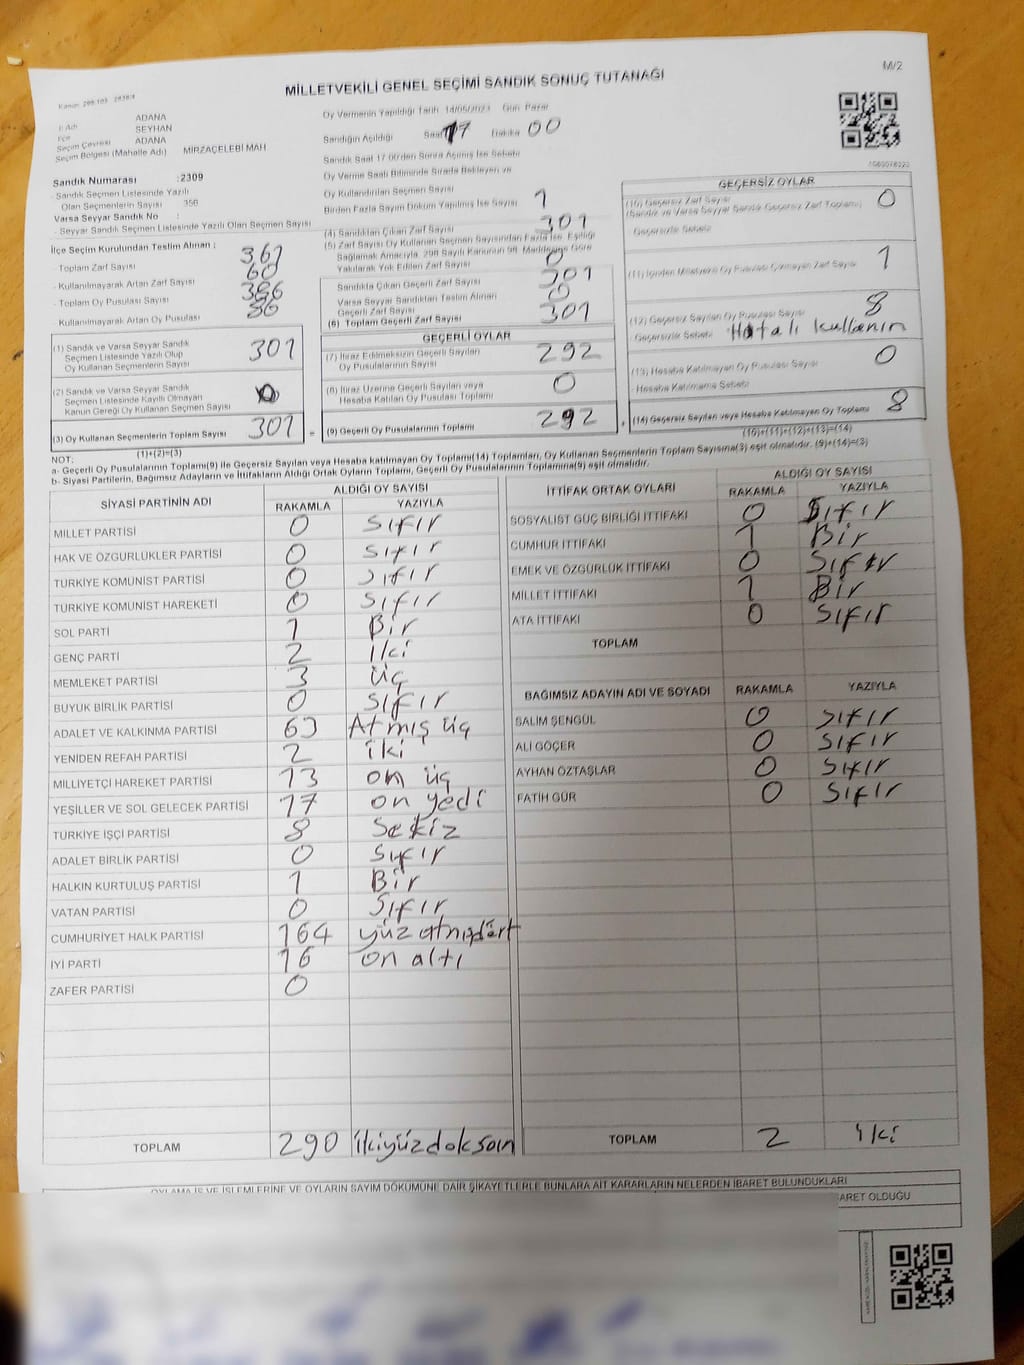 M/2
MİLLETVEKİLİ GENEL SEÇİMİ SANDIK SONUÇ TUTANAĞI
İl Adı ADANA
İlçe SEYHAN
Seçim Çevresi ADANA
Seçim Bölgesi (Mahalle Adı) MİRZAÇELEBİ MAH
Sandık Numarası :2309
Sandık Seçmen Listesinde Yazılı
Olan Seçmenlerin Sayısı 356
Varsa Seyyar Sandık No :
- Seyyar Sandık Seçmen Listesinde Yazılı Olan Seçmen Sayısı
İlçe Seçim Kurulundan Teslim Alınan :
- Toplam Zarf Sayısı 361
- Kullanılmayarak Artan Zarf Sayısı 60
- Toplam Oy Pusulası Sayısı
- Kullanılmayarak Artan Oy Pusulası
(1) Sandık ve Varsa Seyyar Sandık
Seçmen Listesinde Yazılı Olup
Oy Kullanan Seçmenlerin Sayısı 301
(2) Sandık ve Varsa Seyyar Sandık
Seçmen Listesinde Kayıtlı Olmayan
Kanun Gereği Oy Kullanan Seçmen Sayısı 0
(3) Oy Kullanan Seçmenlerin Toplam Sayısı 301
(1)+(2)=(3)
Oy Vermenin Yapıldığı Tarih 14/05/2023 Gün Pazar
Sandığın Açıldığı Saat 17 Dakika 00
Sandık Saat 17.00'den Sonra Açılmış İse Sebebi
Oy Verme Saati Bitiminde Sırada Bekleyen ve
Oy Kullandırılan Seçmen Sayısı
Birden Fazla Sayım Döküm Yapılmış İse Sayısı 1
(4) Sandıktan Çıkan Zarf Sayısı 301
(5) Zarf Sayısı Oy Kullanan Seçmen Sayısından Fazla İse, Eşitliği
Sağlamak Amacıyla, 298 Sayılı Kanunun 98. Maddesine Göre
Yakılarak Yok Edilen Zarf Sayısı 0
Sandıkta Çıkan Geçerli Zarf Sayısı 301
Varsa Seyyar Sandıktan Teslim Alınan
Geçerli Zarf Sayısı 0
(6) Toplam Geçerli Zarf Sayısı 301
GEÇERLİ OYLAR
(7) İtiraz Edilmeksizin Geçerli Sayılan
Oy Pusulalarının Sayısı 292
(8) İtiraz Üzerine Geçerli Sayılan veya
Hesaba Katılan Oy Pusulası Toplamı 0
(9) Geçerli Oy Pusulalarının Toplamı 292
GEÇERSİZ OYLAR
(10) Geçersiz Zarf Sayısı 0
(Sandık ve Varsa Seyyar Sandık Geçersiz Zarf Toplamı)
Geçersizlik Sebebi
(11) İçinden Milletvekili Oy Pusulası Çıkmayan Zarf Sayısı 1
(12) Geçersiz Sayılan Oy Pusulası Sayısı 8
Geçersizlik Sebebi Hatalı kullanın
(13) Hesaba Katılmayan Oy Pusulası Sayısı 0
Hesaba Katılmama Sebebi
(14) Geçersiz Sayılan veya Hesaba Katılmayan Oy Toplamı 8
(10)+(11)+(12)+(13)=(14)
NOT:
a- Geçerli Oy Pusulalarının Toplamı(9) ile Geçersiz Sayılan veya Hesaba katılmayan Oy Toplamı(14) Toplamları, Oy Kullanan Seçmenlerin Toplam Sayısına(3) eşit olmalıdır. (9)+(14)=(3)
b- Siyasi Partilerin, Bağımsız Adayların ve İttifakların Aldığı Ortak Oyların Toplamı, Geçerli Oy Pusulalarının Toplamına(9) eşit olmalıdır.
SİYASİ PARTİNİN ADI ALDIĞI OY SAYISI
RAKAMLA YAZIYLA
MİLLET PARTİSİ 0 Sıfır
HAK VE ÖZGÜRLÜKLER PARTİSİ 0 Sıfır
TÜRKİYE KOMÜNİST PARTİSİ 0 Sıfır
TÜRKİYE KOMÜNİST HAREKETİ 0 Sıfır
SOL PARTİ 1 Bir
GENÇ PARTİ 2 iki
MEMLEKET PARTİSİ 3 üç
BÜYÜK BİRLİK PARTİSİ 0 Sıfır
ADALET VE KALKINMA PARTİSİ 63 Atmış üç
YENİDEN REFAH PARTİSİ 2 iki
MİLLİYETÇİ HAREKET PARTİSİ 13 on üç
YEŞİLLER VE SOL GELECEK PARTİSİ 17 on yedi
TÜRKİYE İŞÇİ PARTİSİ 8 Sekiz
ADALET BİRLİK PARTİSİ 0 Sıfır
HALKIN KURTULUŞ PARTİSİ 1 Bir
VATAN PARTİSİ 0 Sıfır
CUMHURİYET HALK PARTİSİ 164 yüz atmışdört
İYİ PARTİ 16 on altı
ZAFER PARTİSİ 0
TOPLAM 290 ikiyüzdoksan
İTTİFAK ORTAK OYLARI ALDIĞI OY SAYISI
RAKAMLA YAZIYLA
SOSYALİST GÜÇ BİRLİĞİ İTTİFAKI 0 Sıfır
CUMHUR İTTİFAKI 1 Bir
EMEK VE ÖZGÜRLÜK İTTİFAKI 0 Sıfır
MİLLET İTTİFAKI 1 Bir
ATA İTTİFAKI 0 Sıfır
TOPLAM
BAĞIMSIZ ADAYIN ADI VE SOYADI RAKAMLA YAZIYLA
SALİM ŞENGÜL 0 Sıfır
ALİ GÖÇER 0 Sıfır
AYHAN ÖZTAŞLAR 0 Sıfır
FATİH GÜR 0 Sıfır
TOPLAM 2 iki
OYLAMA İŞ VE İŞLEMLERİNE VE OYLARIN SAYIM DÖKÜMÜNE DAİR ŞİKAYETLERLE BUNLARA AİT KARARLARIN NELERDEN İBARET BULUNDUKLARI
ARET OLDUĞU